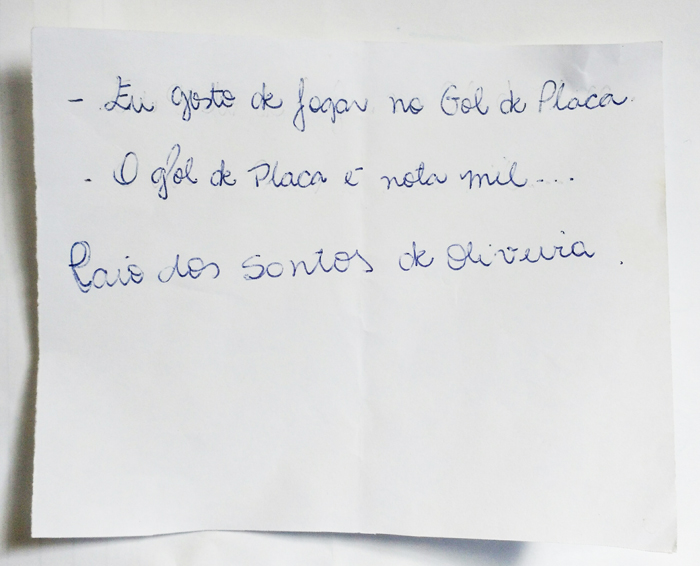 - Eu gosto de jogar no Gol de Placa.
- O gol de Placa é nota mil...
Caio dos Santos de Oliveira.